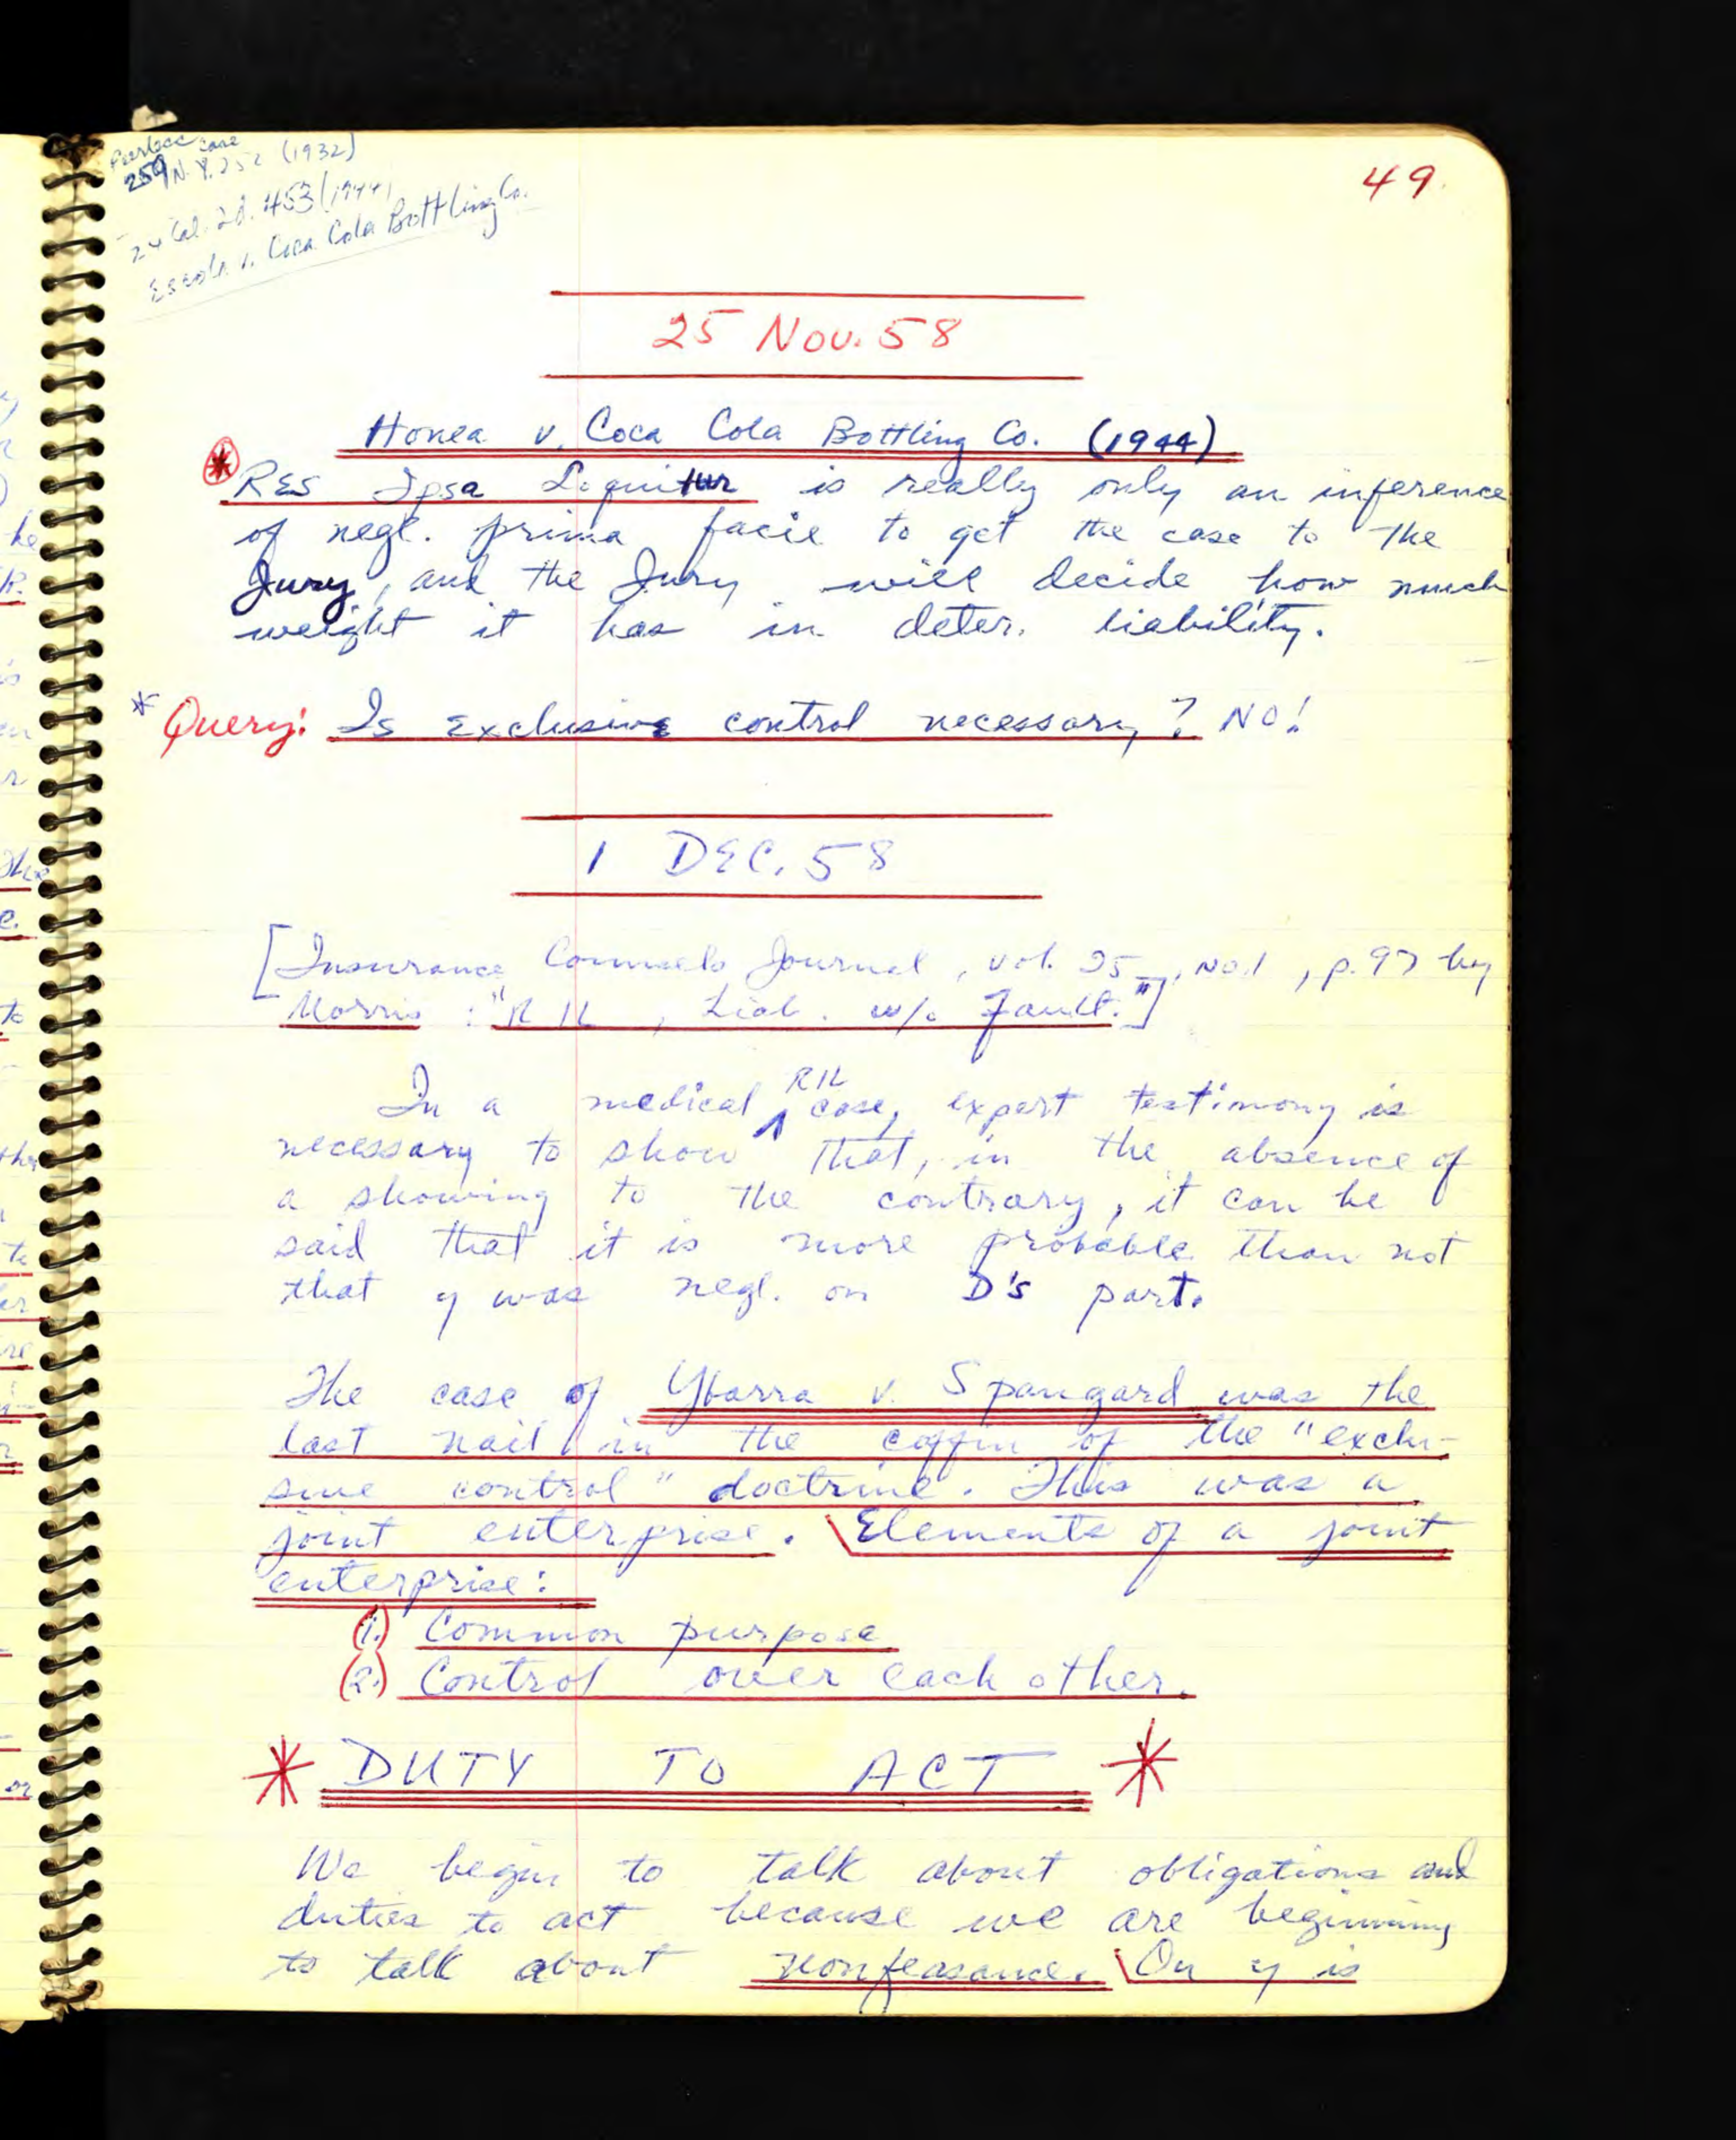 Peerless case
259 N.Y. 252 (1932)
24 Cal. 2d. 453 (1944)
Escola v. Coca Cola Bottling Co.
49.
25 Nov. 58
Honea v. Coca Cola Bottling Co. (1944)
* RES Ipsa Loquitur is really only an inference
of negl. prima facie to get the case to the
Jury, and the Jury will decide how much
weight it has in deter. liability.
* Query: Is Exclusive control necessary? NO!
1 DEC. 58
[Insurance Counsels Journal, vol. 25, No.1, p.97 by
Morris: "RIL, Liab. w/o Fault."]
RIL
In a medical ^ case, expert testimony is
necessary to show that, in the absence of
a showing to the contrary, it can be
said that it is more probable than not
that y was negl. on D's part.
The case of Ybarra v. Spangard was the
last nail in the coffin of the "exclu-
sive control" doctrine. This was a
joint enterprise. \Elements of a joint
enterprise:
(1.) Common purpose
(2.) Control over each other.
* DUTY TO ACT *
We begin to talk about obligations and
duties to act because we are beginning
to talk about nonfeasance. \On y is